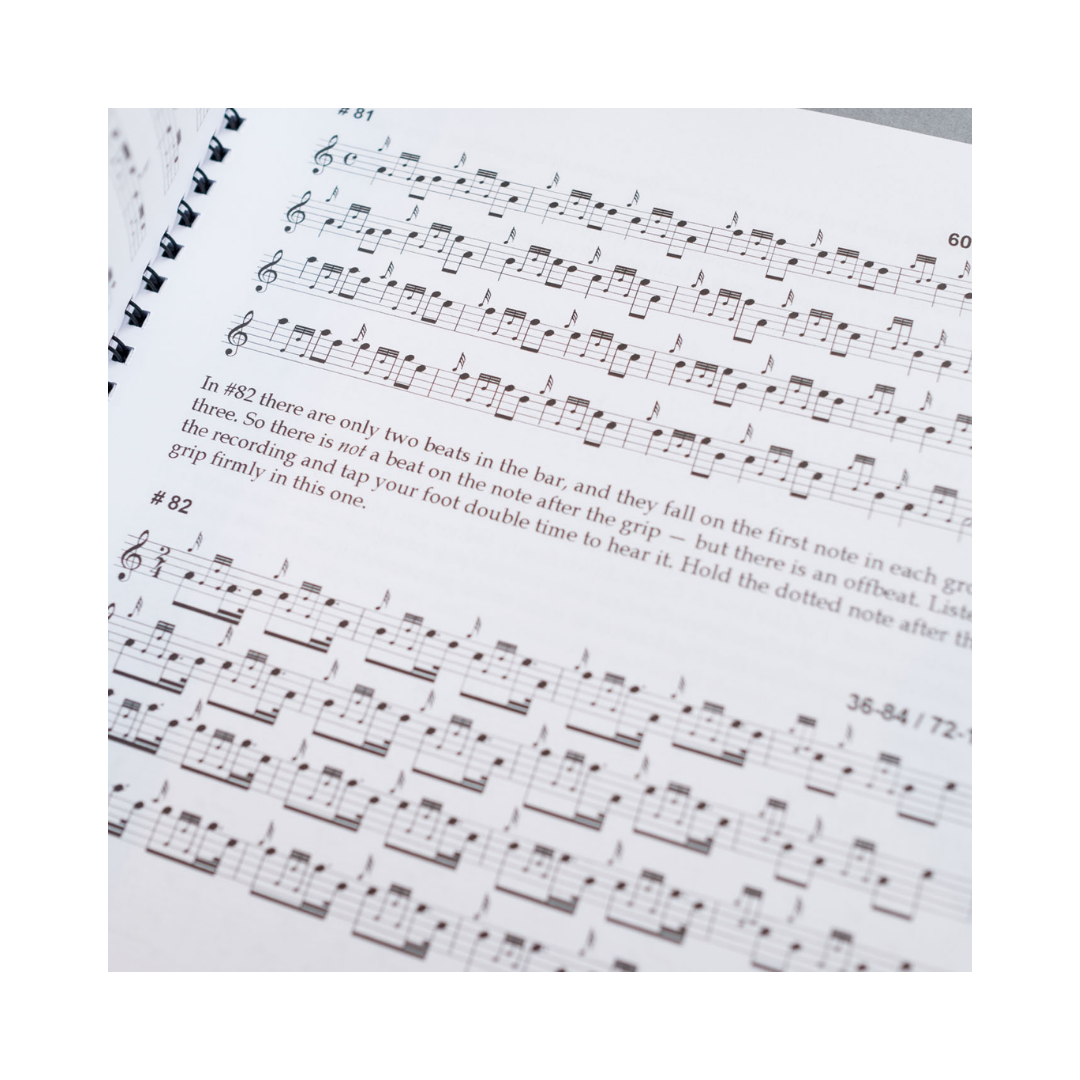 # 81
60
In #82 there are only two beats in the bar, and they fall on the first note in each
three. So there is not a beat on the note after the grip — but there is an offbeat.
the recording and tap your foot double time to hear it. Hold the dotted note after
grip firmly in this one.
# 82
2
4
36-84 / 72-